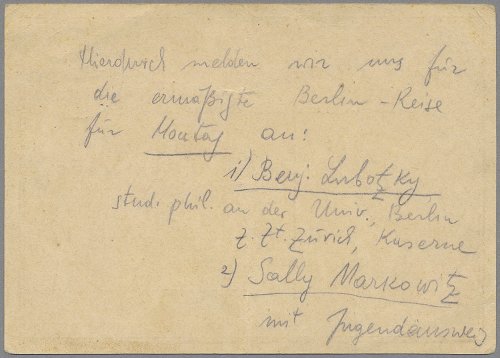 Hierdurch melden wir uns für
die ermäßigte Berlin-Reise
für Montag an:
1) Benj. Lubotzky,
stud. phil. an der Univ., Berlin
z. Zt. Zürich, Kaserne
2) Sally Markowitz
mit Jugendausweis